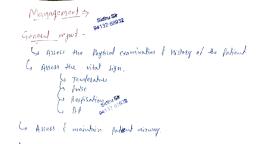 Management :→
General mgmt. -
↳ Assess the physical examination & history of the patient
↳ Assess the vital sign.
↳ Temperature
↳ Pulse
↳ Respiration
↳ BP
↳ Assess & maintain patent airway.